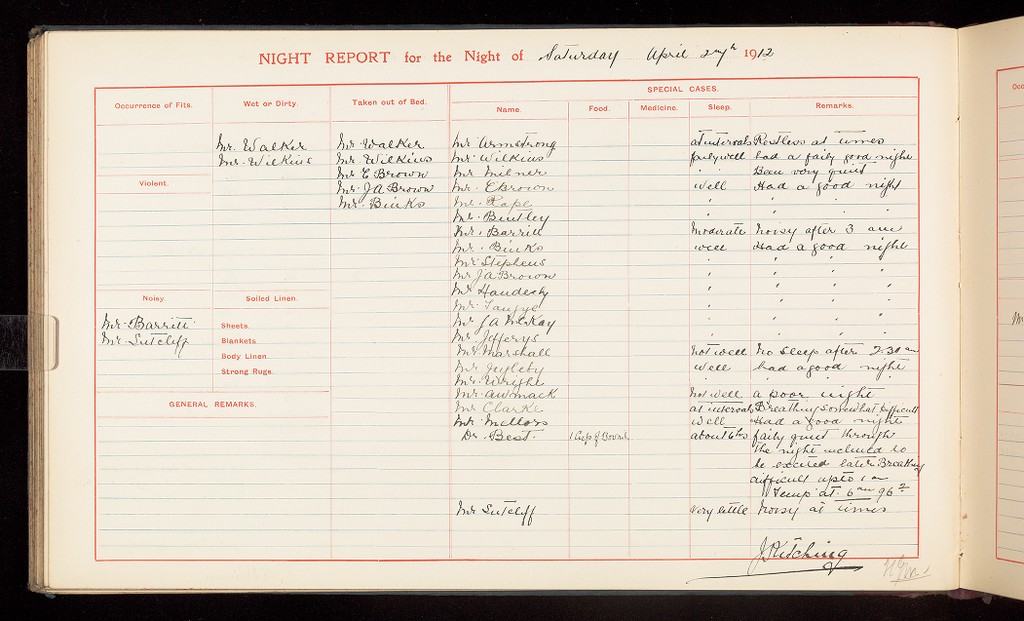 NIGHT REPORT for the Night of Saturday April 27th 1912
SPECIAL CASES.
Occurrence of Fits.
Wet or Dirty.
Taken out of Bed.
Name.
Food.
Medicine.
Sleep.
Remarks.
Mr. Walker
Mr. Wilkins
Mr Walker
Mr. Wilkins
Mr E Brown
Mr. J A Brown
Mr. Binks
Violent.
Noisy.
Mr. Barritt
Mr. Sutcliff
Soiled Linen.
Sheets.
Blankets
Body Linen.
Strong Rugs.
GENERAL REMARKS.
Mr Armstrong at intervals Restless at times
Mr. Wilkins faily well had a faily good night
Mr Milner " " Been very quiet
Mr. E Brown well Had a good night
Mr. Rape " " " "
Mr. Bentley
Mr. Barritt Moderate Noisy after 3 am
Mr. Binks well Had a good night
Mr Stephens " " " "
Mr J A Brown " " " "
Mr " " " "
Mr. " " " "
Mr. J A McKay " " " "
Mr. Jefferys " " " "
Mr. Marshall Not well No sleep after 2.30 am
Mr well had a good night
Mr. Wright " " " "
Mr. Awmack Not well a poor night
Mr Clarke at intervals Breathing somewhat difficult
Mr. Mellors Well Had a good night
Dr. Best. 1 Cup of Bovril about 6 hrs faily quiet through
the night inclined to
be excited later Breathing
difficult up to 1 am
Temp at 6 am 96.2
Mr Sutcliff very little Noisy at times
J Kitching